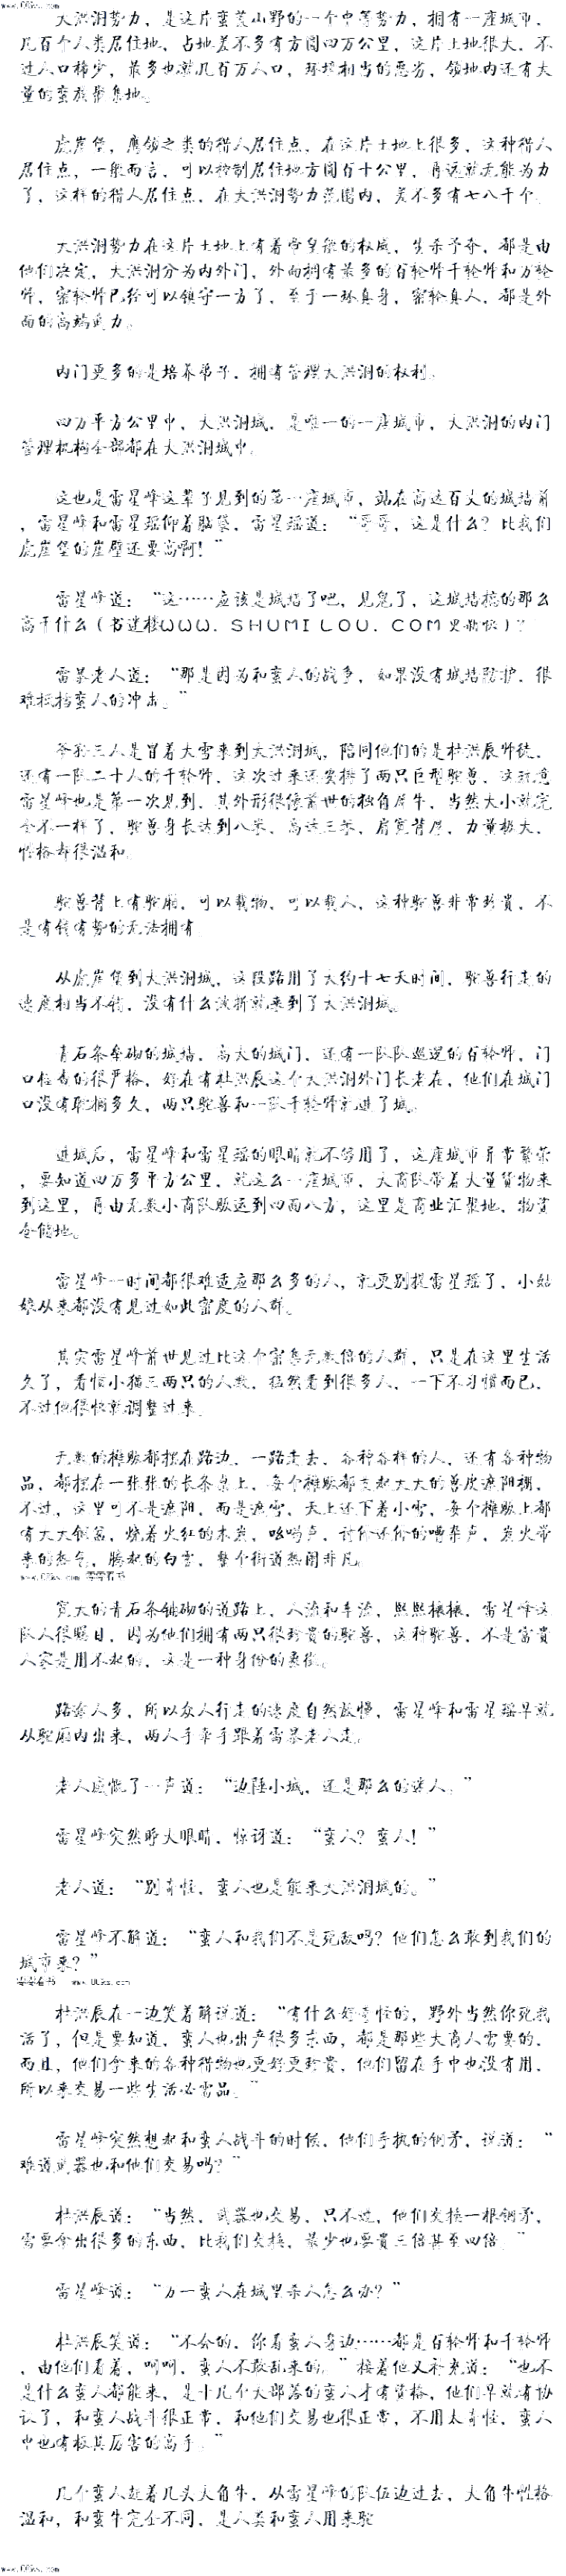 www.00ks.com
大洪涧势力，是这片蛮荒山野的一个中等势力，拥有一座城市，
几百个人类居住地，占地差不多有方圆四万公里，这片土地很大，不
过人口稀少，最多也就几百万人口，环境相当的恶劣，领地内还有大
量的蛮族聚集地。
虎崖堡，鹰领之类的猎人居住点，在这片土地上很多，这种猎人
居住点，一般而言，可以控制居住地方圆百十公里，再远就无能为力
了，这样的猎人居住点，在大洪涧势力范围内，差不多有七八千个。
大洪涧势力在这片土地上有着帝皇般的权威，生杀予夺，都是由
他们决定，大洪涧分为内外门，外面拥有最多的百轮师千轮师和万轮
师，密轮师已经可以镇守一方了，至于一环真身，密轮真人，都是外
面的高端武力。
内门更多的是培养弟子，拥有管理大洪涧的权利。
四万平方公里中，大洪涧城，是唯一的一座城市，大洪涧的内门
管理机构全部都在大洪涧城中。
这也是雷星峰这辈子见到的第一座城市，站在高达百丈的城墙前
，雷星峰和雷星瑶仰着脑袋，雷星瑶道：“哥哥，这是什么？比我们
虎崖堡的崖壁还要高啊！”
雷星峰道：“这……应该是城墙了吧，见鬼了，这城墙搞的那么
高干什么（书迷楼ＷＷＷ．ＳＨＵＭＩＬＯＵ．ＣＯＭ更新快）？”
雷暴老人道：“那是因为和蛮人的战争，如果没有城墙防护，很
难抵挡蛮人的冲击。”
爷孙三人是冒着大雪来到大洪涧城，陪同他们的是杜洪辰师徒，
还有一队二十人的千轮师，这次过来还安排了两只巨型驼兽，这玩意
雷星峰也是第一次见到，其外形很像前世的独角犀牛，当然大小就完
全不一样了，驼兽身长达到八米，高达三米，肩宽背厚，力量极大，
性格却很温和。
驼兽背上有驼厢，可以载物，可以载人，这种驼兽非常珍贵，不
是有钱有势的无法拥有。
从虎崖堡到大洪涧城，这段路用了大约十七天时间，驼兽行走的
速度相当不错，没有什么波折就来到了大洪涧城。
青石条垒砌的城墙，高大的城门，还有一队队巡逻的百轮师，门
口检查的很严格，好在有杜洪辰这个大洪涧外门长老在，他们在城门
口没有耽搁多久，两只驼兽和一队千轮师就进了城。
进城后，雷星峰和雷星瑶的眼睛就不够用了，这座城市异常繁荣
，要知道四万多平方公里，就这么一座城市，大商队带着大量货物来
到这里，再由无数小商队贩运到四面八方，这里是商业汇聚地，物资
仓储地。
雷星峰一时间都很难适应那么多的人，就更别提雷星瑶了，小姑
娘从来都没有见过如此密度的人群。
其实雷星峰前世见过比这个密集无数倍的人群，只是在这里生活
久了，看惯小猫三两只的人数，猛然看到很多人，一下不习惯而已，
不过他很快就调整过来。
无数的摊贩都摆在路边，一路走去，各种各样的人，还有各种物
品，都摆在一张张的长条桌上，每个摊贩都支起大大的兽皮遮阳棚，
不过，这里可不是遮阳，而是遮雪，天上还下着小雪，每个摊贩上都
有大大铜盆，烧着火红的木炭，吆喝声，讨价还价的嘈杂声，炭火带
来的热气，腾起的白雾，整个街道热闹非凡。
www.00ks.com 零零看书
宽大的青石条铺砌的道路上，人流和车流，熙熙攘攘，雷星峰这
队人很瞩目，因为他们拥有两只很珍贵的驼兽，这种驼兽，不是富贵
人家是用不起的，这是一种身份的象征。
路途人多，所以众人行走的速度自然放慢，雷星峰和雷星瑶早就
从驼厢内出来，两人手牵手跟着雷暴老人走。
老人感慨了一声道：“边陲小城，还是那么的迷人。”
雷星峰突然睁大眼睛，惊讶道：“蛮人？蛮人！”
老人道：“别奇怪，蛮人也是能来大洪涧城的。”
雷星峰不解道：“蛮人和我们不是死敌吗？他们怎么敢到我们的
城市来？”
零零看书 www.00ks.com
杜洪辰在一边笑着解说道：“有什么好奇怪的，野外当然你死我
活了，但是要知道，蛮人也出产很多东西，都是那些大商人需要的，
而且，他们拿来的各种猎物也更好更珍贵，他们留在手中也没有用，
所以来交易一些生活必需品。”
雷星峰突然想起和蛮人战斗的时候，他们手执的钢矛，说道：“
难道武器也和他们交易吗？”
杜洪辰道：“当然，武器也交易，只不过，他们交换一根钢矛，
需要拿出很多的东西，比我们交换，最少也要贵三倍甚至四倍。”
雷星峰道：“万一蛮人在城里杀人怎么办？”
杜洪辰笑道：“不会的，你看蛮人身边……都是百轮师和千轮师
，由他们看着，呵呵，蛮人不敢乱来的。”接着他又补充道：“也不
是什么蛮人都能来，是十几个大部落的蛮人才有资格，他们早就有协
议了，和蛮人战斗很正常，和他们交易也很正常，不用太奇怪，蛮人
中也有极其厉害的高手。”
几个蛮人赶着几头大角牛，从雷星峰的队伍边过去，大角牛性格
温和，和蛮牛完全不同，是人类和蛮人用来驼
www.00ks.com